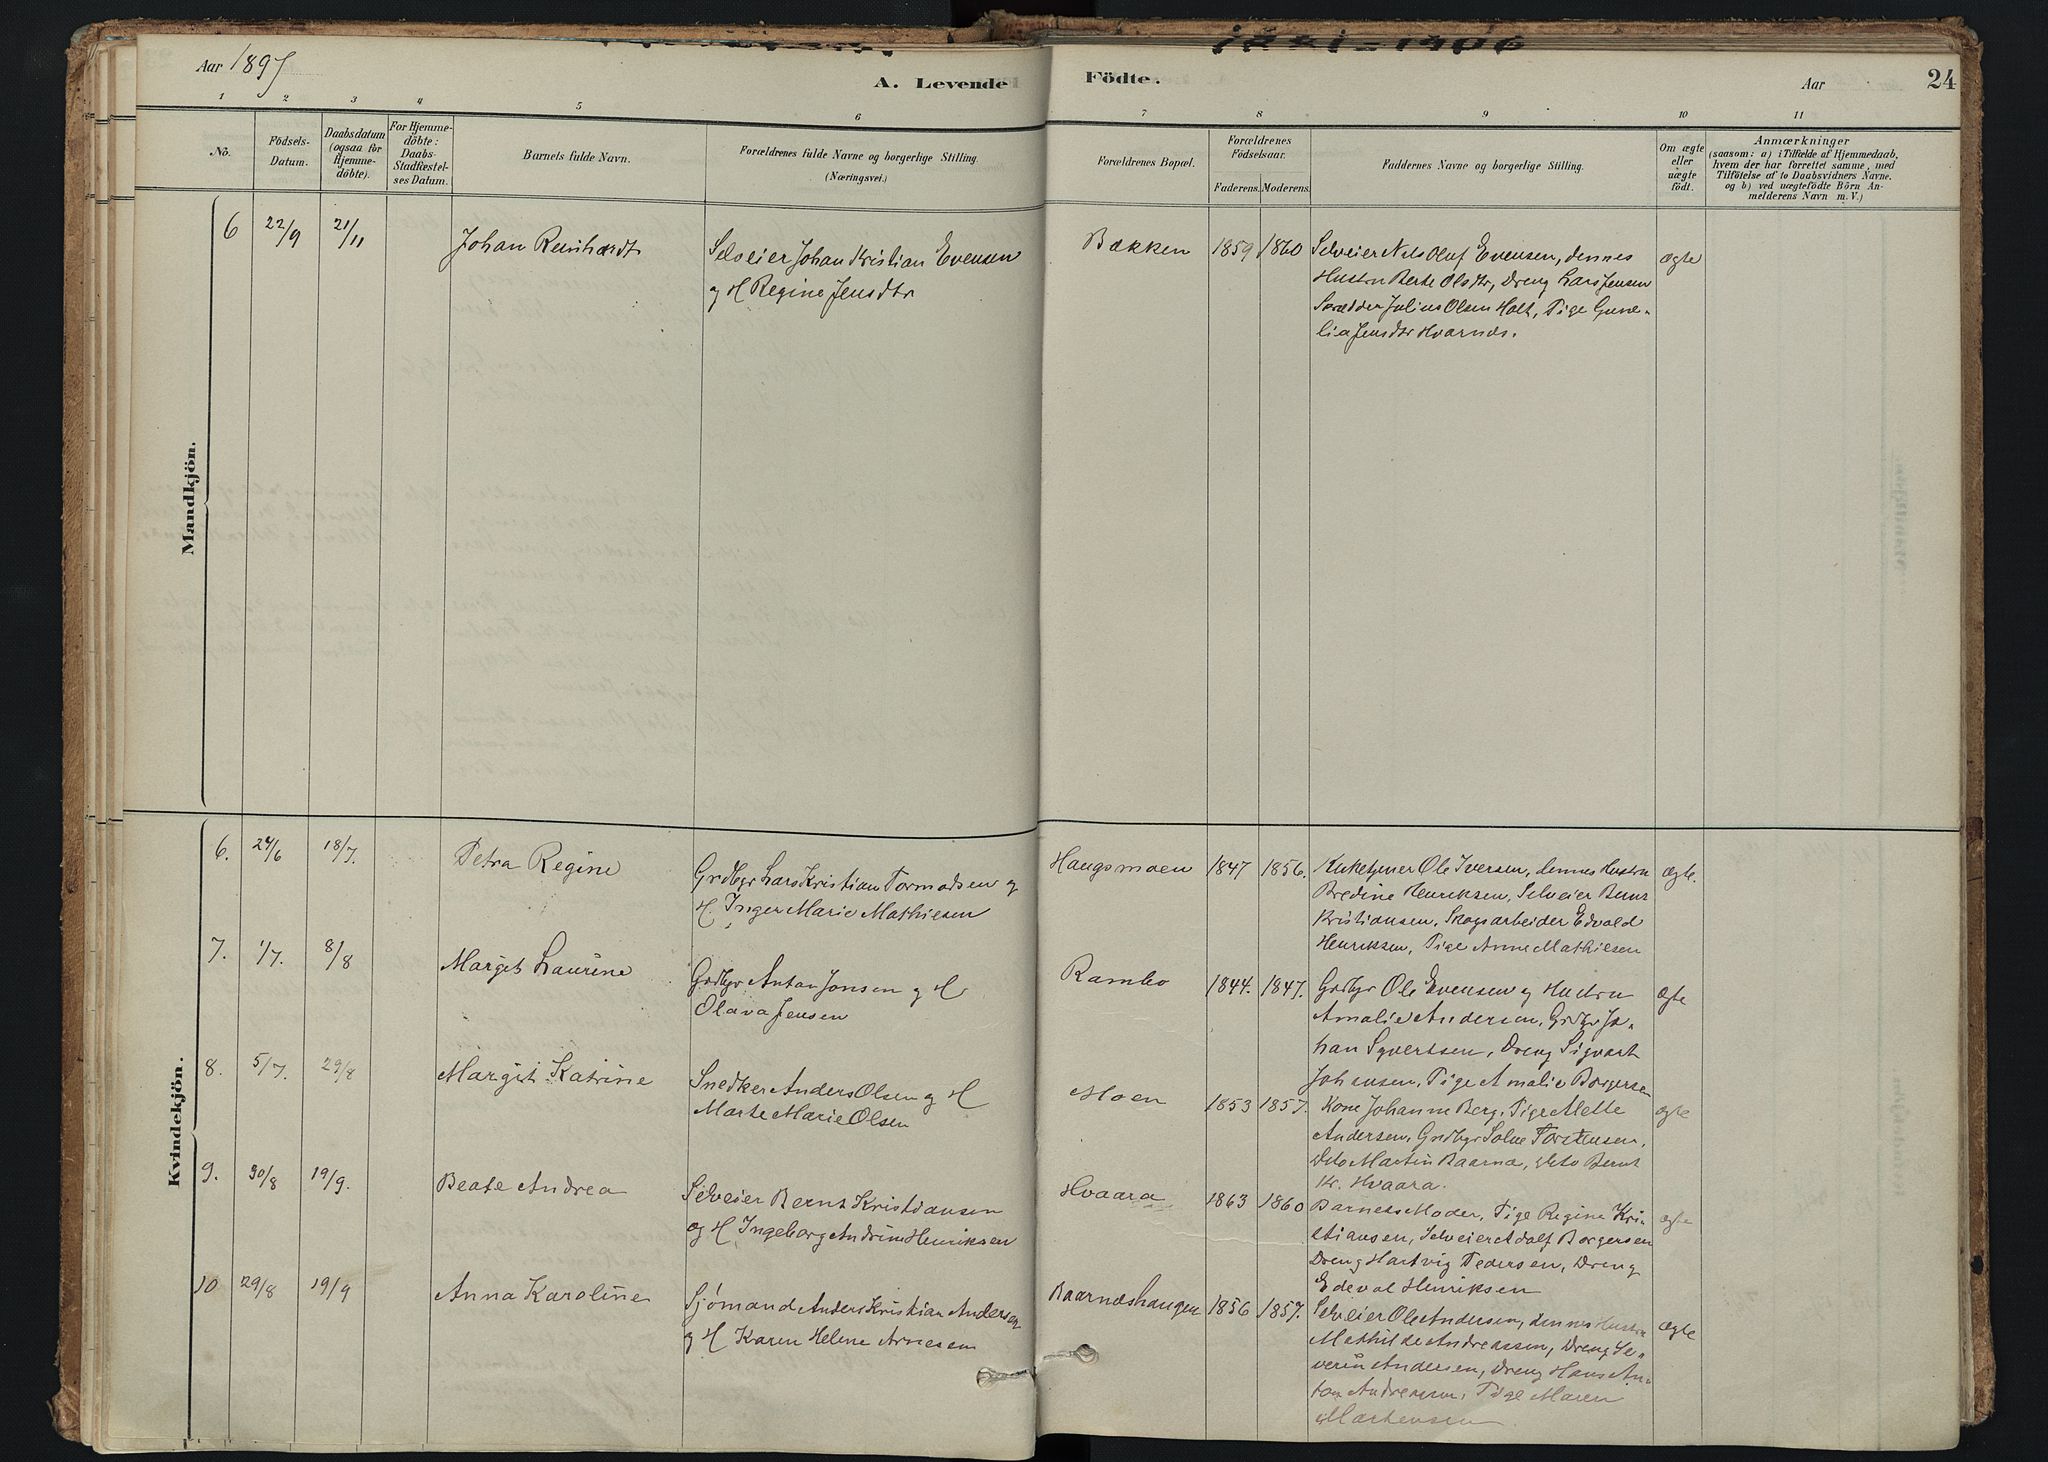 1881-1906
Aar 1897
A. Levende
Födte.
Aar
24
1
2
3
4
5
6
7
8
9
10
11
No.
Födsels-
Datum.
Daabsdatum
(ogsaa for
Hjemme-
döbte).
For Hjemme-
döbte:
Daabs-
Stadfæstel-
ses Datum.
Barnets fulde Navn.
Forældrenes fulde Navne og borgerlige Stilling.
(Næringsvei.)
Forældrenes Bopæl.
Forældrenes
Födselsaar.
Faderens. Moderens.
Faddernes Navne og borgerlige Stilling.
Om ægte
eller
uægte
födt.
Anmærkninger
(saasom: a) i Tilfælde af Hjemmedaab,
hvem der har forrettet samme, med
Tilföielse af to Daabsvidners Navne,
og b) ved uægtefödte Börn An-
melderens Navn m. V.)
Mandkjön.
6 22/9 21/11 Johan Reinhardt
Selveier Johan Kristian Evensen
og H Regine Jensdtr
Bækken 1859 1860
Selveier Nils Oluf Evensen, dennes
Hustru Berte Olsdtr, Dreng Lars Jensen
Skrædder Julius Olsen Holt, Pige Gune-
lia Jensdtr Hvarnes.
ægte
Kvindekjön.
6. 24/6 18/7. Petra Regine
Grdbgr Lars Kristian Tormodsen og
H. Inger Marie Mathiesen
Haugsmoen 1847 1856.
Enkemand Ole Iversen, dennes Hustru
Bredine Henriksen, Selveier Bernt
Kristiansen, Skogsarbeider Edvald
Henriksen, Pige Anne Mathiesen
ægte.
7. 1/7. 8/8 Margit Laurine
Grdbgr Anton Jonsen og H
Olava Jensen
Rambo 1844. 1847.
Grdbgr Ole Evensen og Hustru
Amalie Andersen, Grdbgr Jo-
han Syvertsen, Dreng Sigvart
Johansen, Pige Amalie Borgersen
ægte
8. 5/7. 29/8 Margit Katrine
Snedker Anders Olsen og H
Marte Marie Olsen
Moen 1853 1857.
Kone Johanne Berg, Pige Mette
Andersen, Grdbgr Solve Torstensen,
Dito Martin Baarnæ, dito Bernt
Kr. Hvaara.
ægte
9. 30/8 19/9. Beate Andrea
Selveier Bernt Kristiansen
og H Ingeborg Andrine Henriksen
Hvaara 1863 1860
Barnets Moder, Pige Regine Kri-
stiansen, Selveier Adolf Borgersen
Dreng Hartvig Pedersen, Dreng
Edeval Henriksen
ægte
10 29/8 19/9 Anna Karoline
Sjømand Anders Kristian Andersen
og H Karen Helene Arnesen
Baarnæshaugen 1856 1857.
Selveier Ole Andersen, dennes Hustru
Mathilde Andreassen, Dreng Se-
verin Andersen, Dreng Hans An-
ton Andreassen, Pige Maren
Martensen
ægte